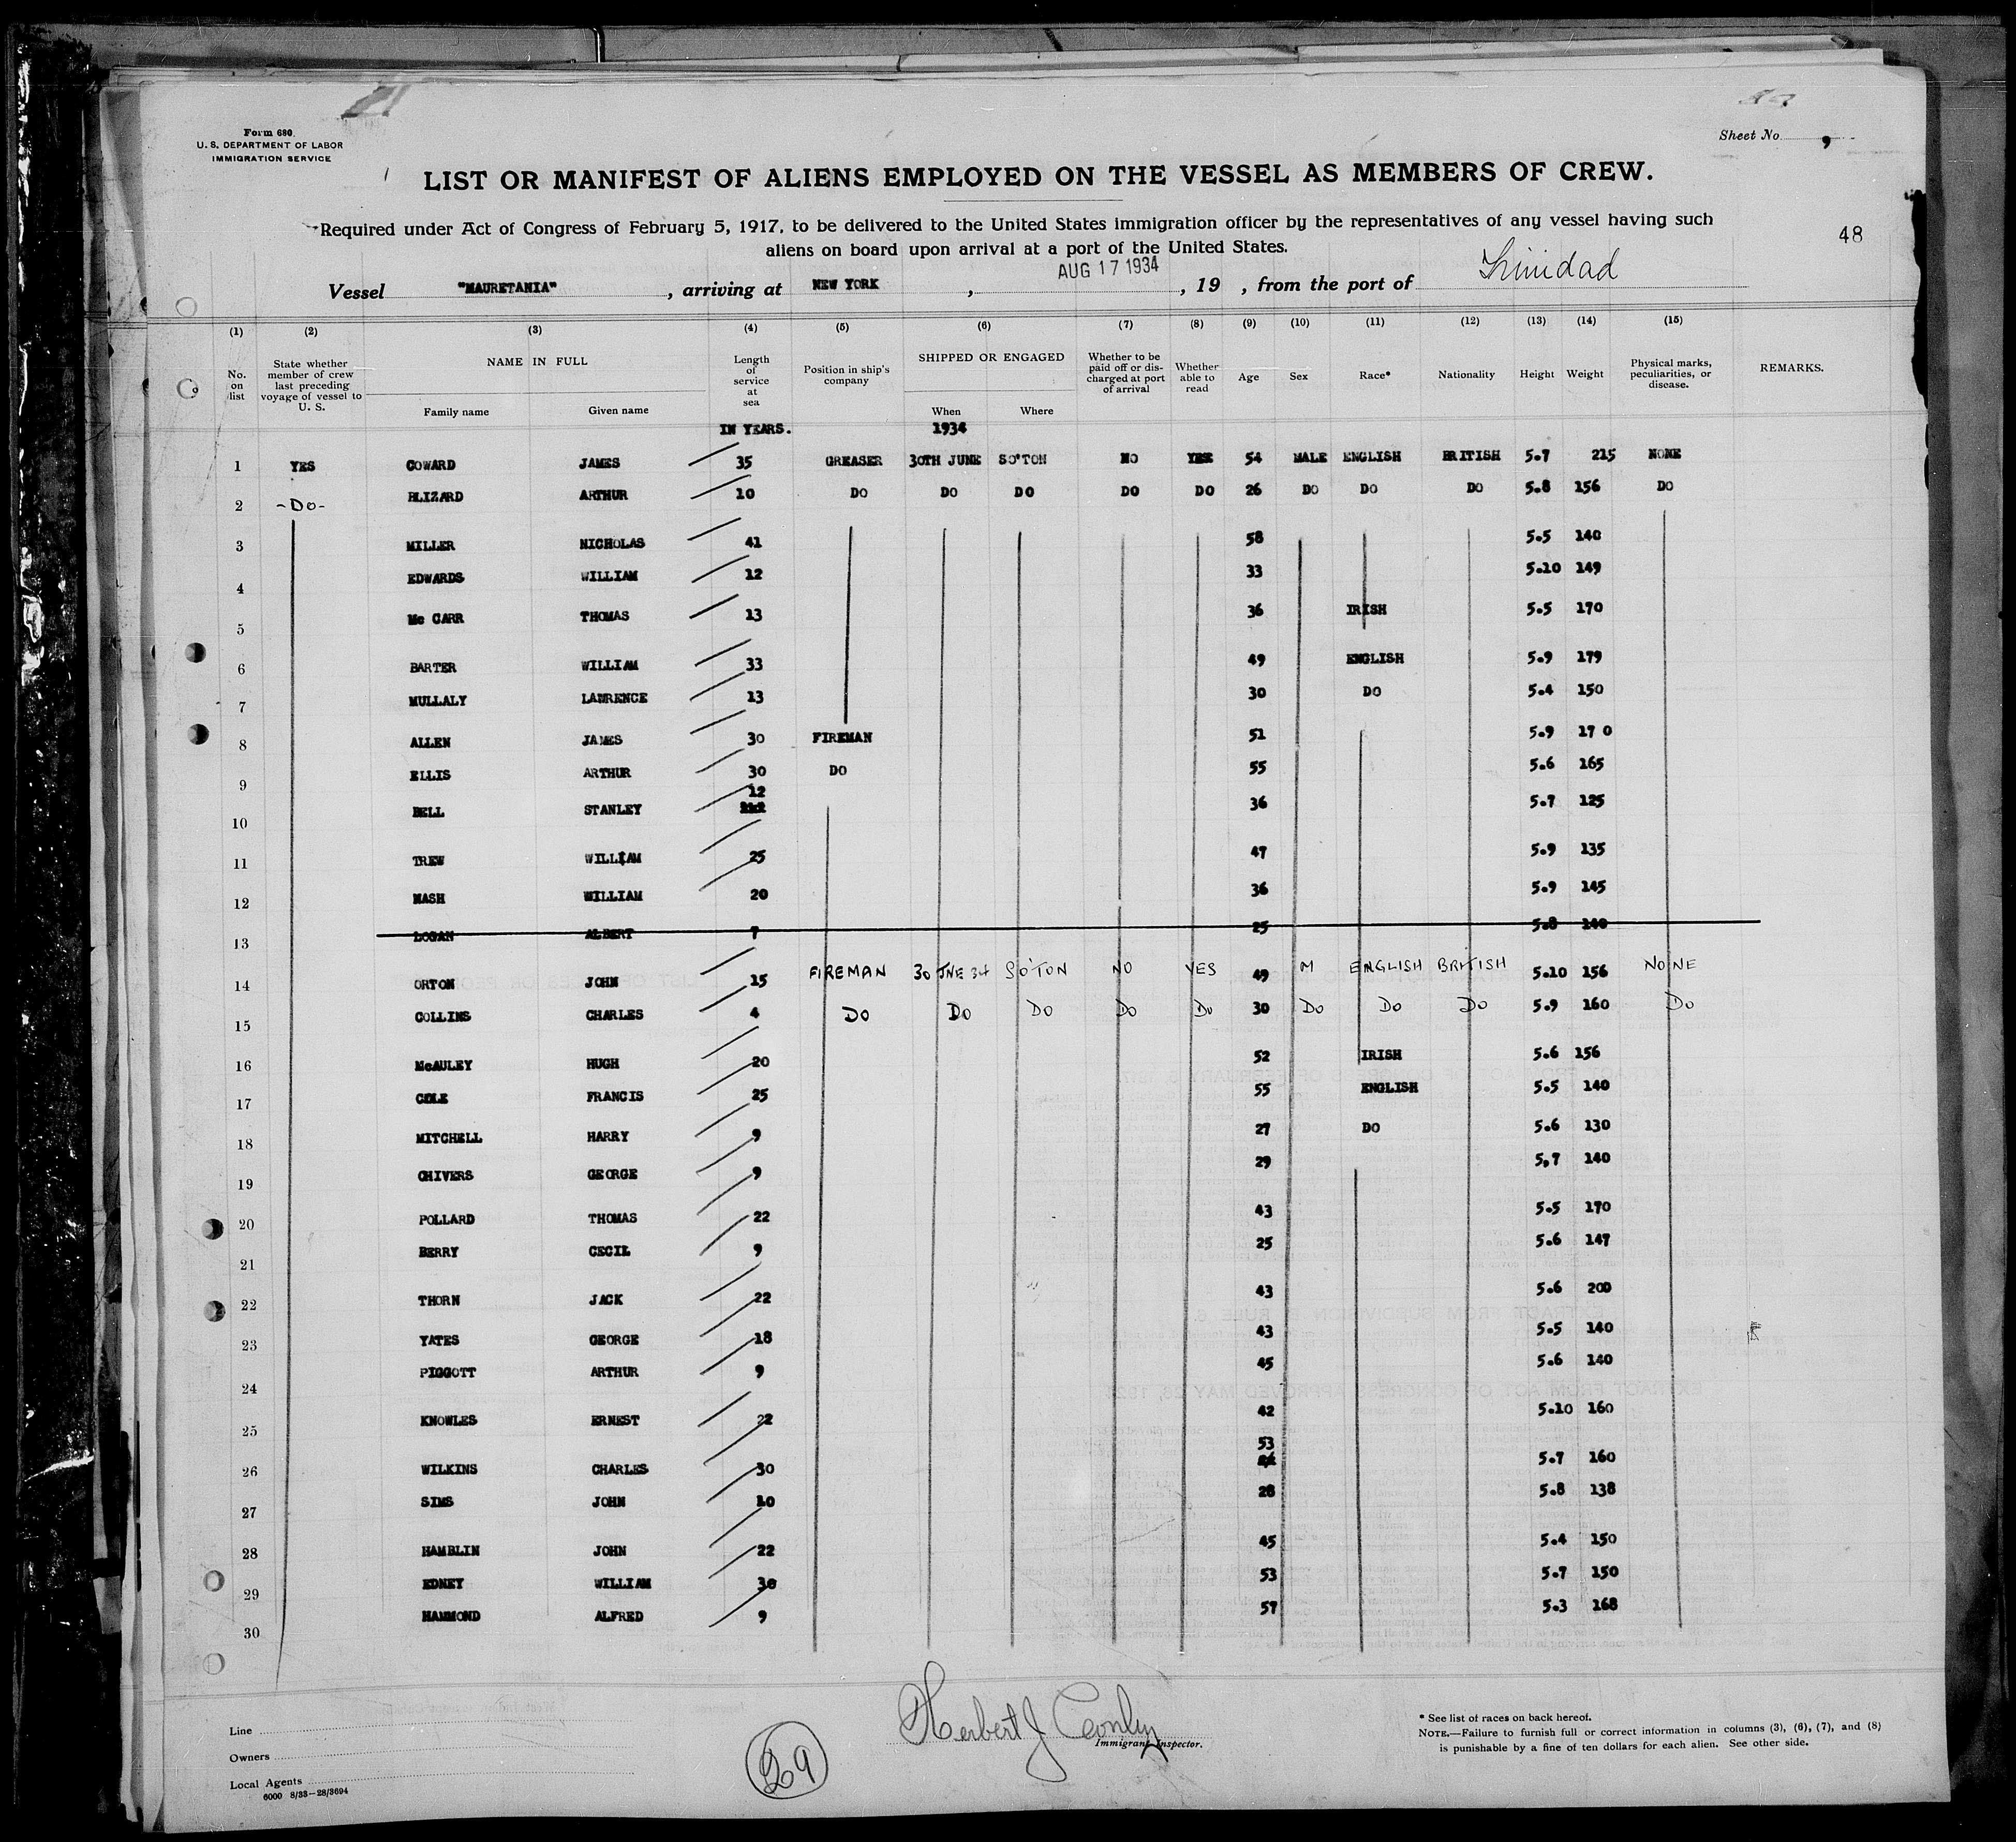 Form 680
U. S. DEPARTMENT OF LABOR
IMMIGRATION SERVICE
Sheet No. 9
LIST OR MANIFEST OF ALIENS EMPLOYED ON THE VESSEL AS MEMBERS OF CREW.
Required under Act of Congress of February 5, 1917, to be delivered to the United States immigration officer by the representatives of any vessel having such
aliens on board upon arrival at a port of the United States.
48
Vessel "MAURETANIA", arriving at NEW YORK, AUG 17 1934, 19 , from the port of Trinidad
(1) (2) (3) (4) (5) (6) (7) (8) (9) (10) (11) (12) (13) (14) (15)
No. on list
State whether member of crew last preceding voyage of vessel to U. S.
NAME IN FULL
Family name Given name
Length of service at sea
Position in ship's company
SHIPPED OR ENGAGED
When Where
Whether to be paid off or discharged at port of arrival
Whether able to read
Age Sex Race* Nationality Height Weight
Physical marks, peculiarities, or disease.
REMARKS.
IN YEARS. 1934
1 YES COWARD JAMES 35 GREASER 30TH JUNE SO'TON NO YES 54 MALE ENGLISH BRITISH 5.7 215 NONE
2 -DO- BLIZARD ARTHUR 10 DO DO DO DO DO 26 DO DO DO 5.8 156 DO
3 MILLER NICHOLAS 41 58 5.5 140
4 EDWARDS WILLIAM 12 33 5.10 149
5 Mc CARR THOMAS 13 36 IRISH 5.5 170
6 BARTER WILLIAM 33 49 ENGLISH 5.9 179
7 MULLALY LAWRENCE 13 30 DO 5.4 150
8 ALLEN JAMES 30 FIREMAN 51 5.9 17 0
9 ELLIS ARTHUR 30 DO 55 5.6 165
10 BELL STANLEY 12 36 5.7 125
11 TREW WILLIAM 25 47 5.9 135
12 NASH WILLIAM 20 36 5.9 145
13 LOGAN ALBERT 7 25 5.8 140
14 ORTON JOHN 15 FIREMAN 30 JNE 34 SO'TON NO YES 49 M ENGLISH BRITISH 5.10 156 NONE
15 COLLINS CHARLES 4 DO DO DO DO DO 30 DO DO DO 5.9 160 DO
16 McAULEY HUGH 20 52 IRISH 5.6 156
17 COLE FRANCIS 25 55 ENGLISH 5.5 140
18 MITCHELL HARRY 9 27 DO 5.6 130
19 CHIVERS GEORGE 9 29 5,7 140
20 POLLARD THOMAS 22 43 5.5 170
21 BERRY CECIL 9 25 5.6 147
22 THORN JACK 22 43 5.6 200
23 YATES GEORGE 18 43 5.5 140
24 PIGGOTT ARTHUR 9 45 5.6 140
25 KNOWLES ERNEST 22 42 5.10 160
26 WILKINS CHARLES 30 53 5.7 160
27 SIMS JOHN 10 28 5.8 138
28 HAMBLIN JOHN 22 45 5.4 150
29 EDNEY WILLIAM 30 53 5.7 150
30 HAMMOND ALFRED 9 57 5.3 168
Line
Owners
Local Agents
6000 8/33—28/3694
29
Herbert J Conlin
Immigrant Inspector.
* See list of races on back hereof.
NOTE.—Failure to furnish full or correct information in columns (3), (6), (7), and (8)
is punishable by a fine of ten dollars for each alien. See other side.